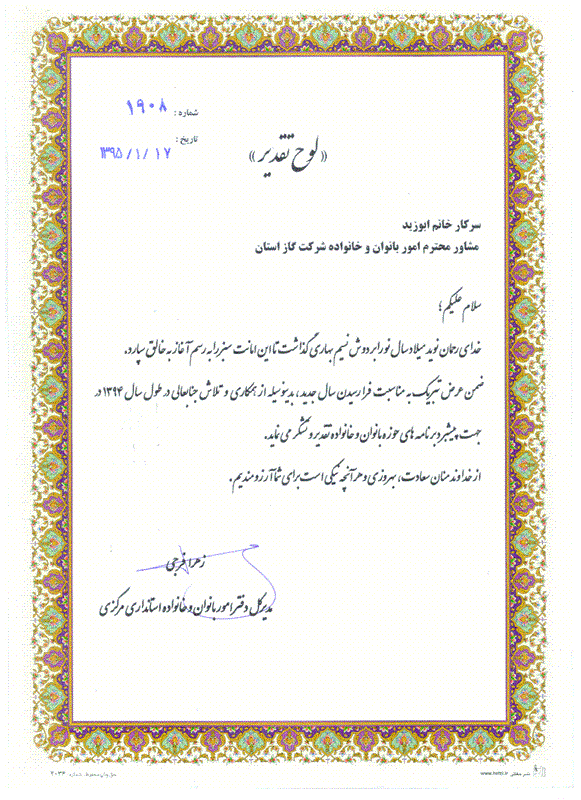 شماره: ۱۹۰۸
تاریخ: ۱۳۹۵/۱/۱۷
«لوح تقدیر»
سرکار خانم ابوزید
مشاور محترم امور بانوان و خانواده شرکت گاز استان
سلام علیکم؛
خدای رحمان نوید میلاد سال نو را بر دوش نسیم بهاری گذاشت تا این امانت سبز را به رسم آغاز به خالق سپارد.
ضمن عرض تبریک به مناسبت فرا رسیدن سال جدید، بدینوسیله از همکاری و تلاش جنابعالی در طول سال ۱۳۹۴ در
جهت پیشبرد برنامه های حوزه بانوان و خانواده تقدیر و تشکر می نماید.
از خداوند منان سعادت، بهروزی و هر آنچه نیکی است برای شما آرزومندیم.
زهرا فرجی
مدیرکل دفتر امور بانوان و خانواده استانداری مرکزی
شماره ۲۰۳۶